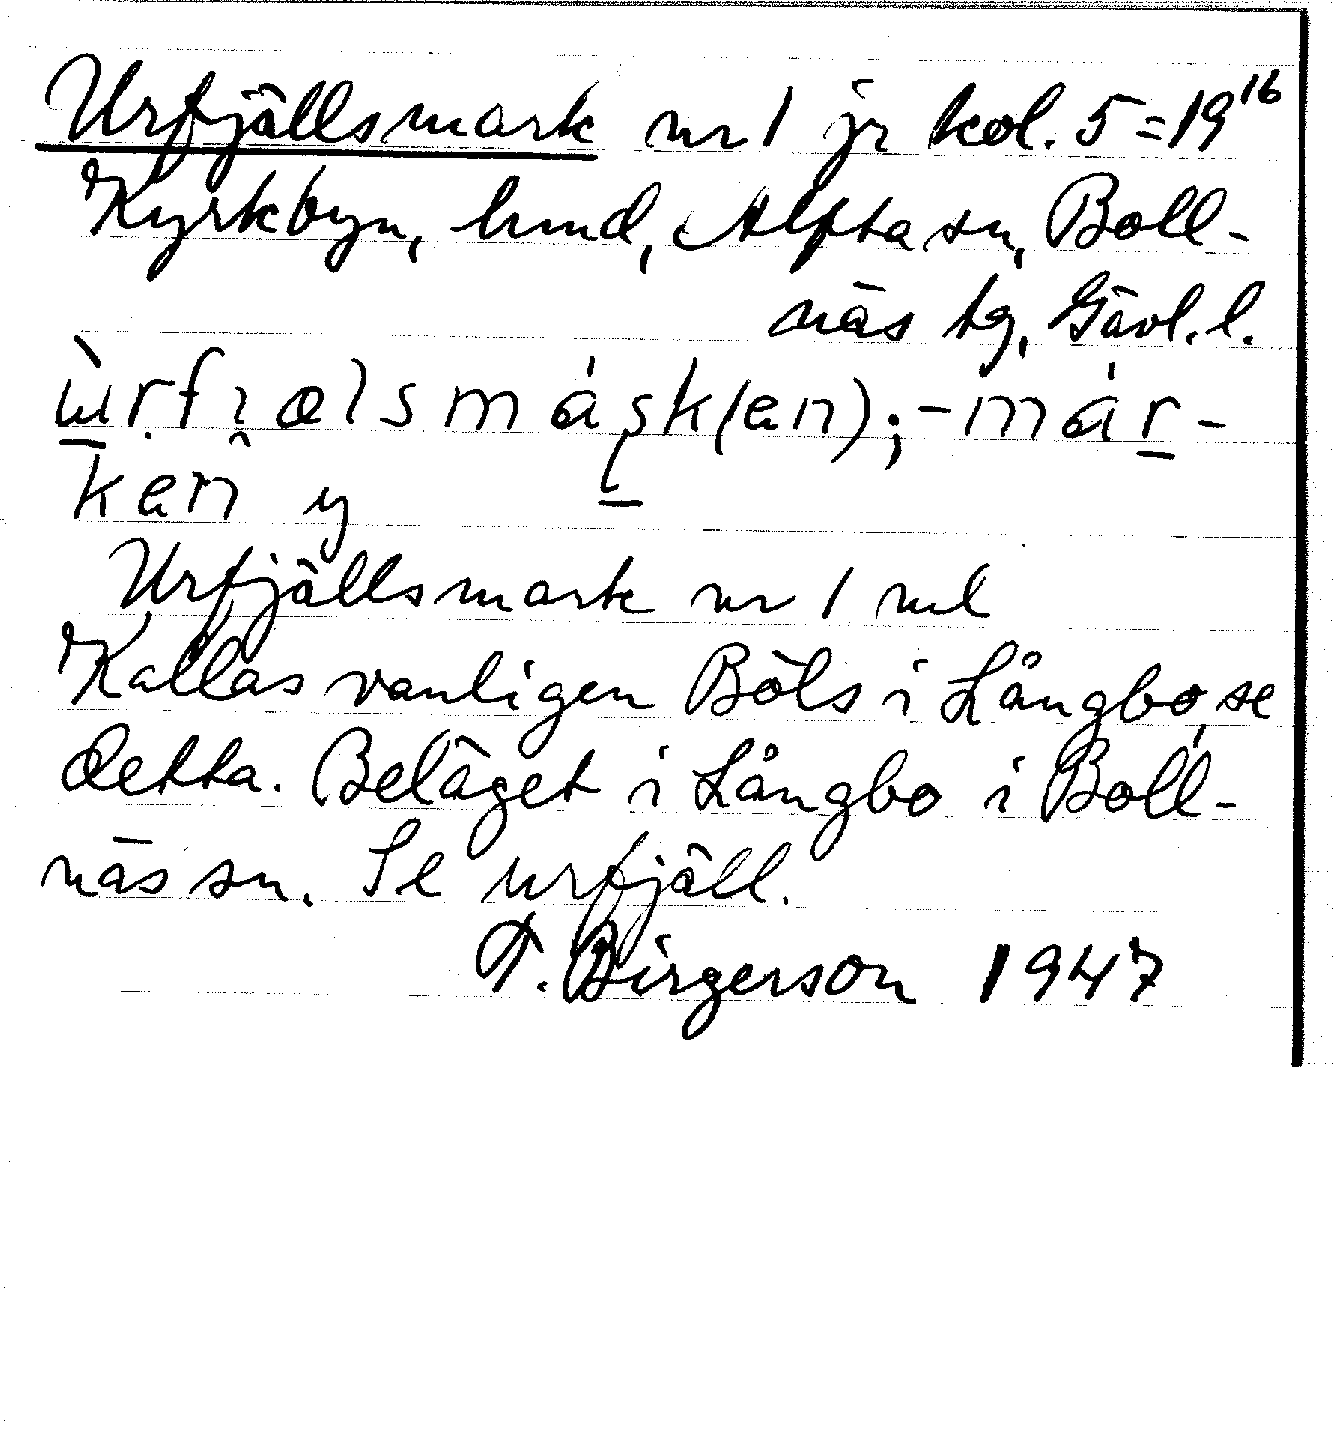 Urfjällsmark nr 1 jr kol. 5 = 19 16
Kyrkbyn, hmd, Alfta sn, Boll-
näs tg, Gävl. l.
ẁrfjælsmásk(en); -már-
ken y
Urfjällsmark nr 1 ml
Kallas vanligen Böls i Långbo, se
detta. Beläget i Långbo i Boll-
näs sn. Se urfjäll.
T. Birgerson 1947